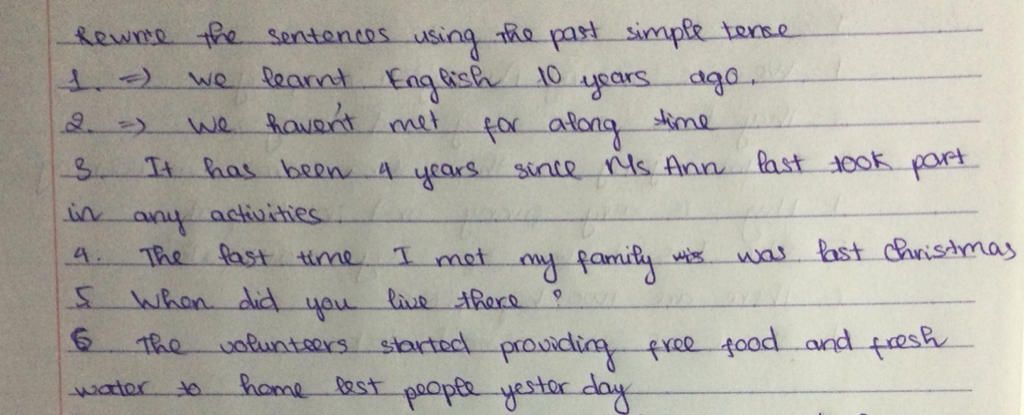 Rewrite the sentences using the past simple tense
1. => We learnt English 10 years ago.
2. => We haven't met for along time
3. It has been 4 years since Ms Ann last took part
in any activities.
4. The last time I met my family was last Christmas
5 When did you live there ?
6 The volunteers started providing free food and fresh
water to home lest people yester day